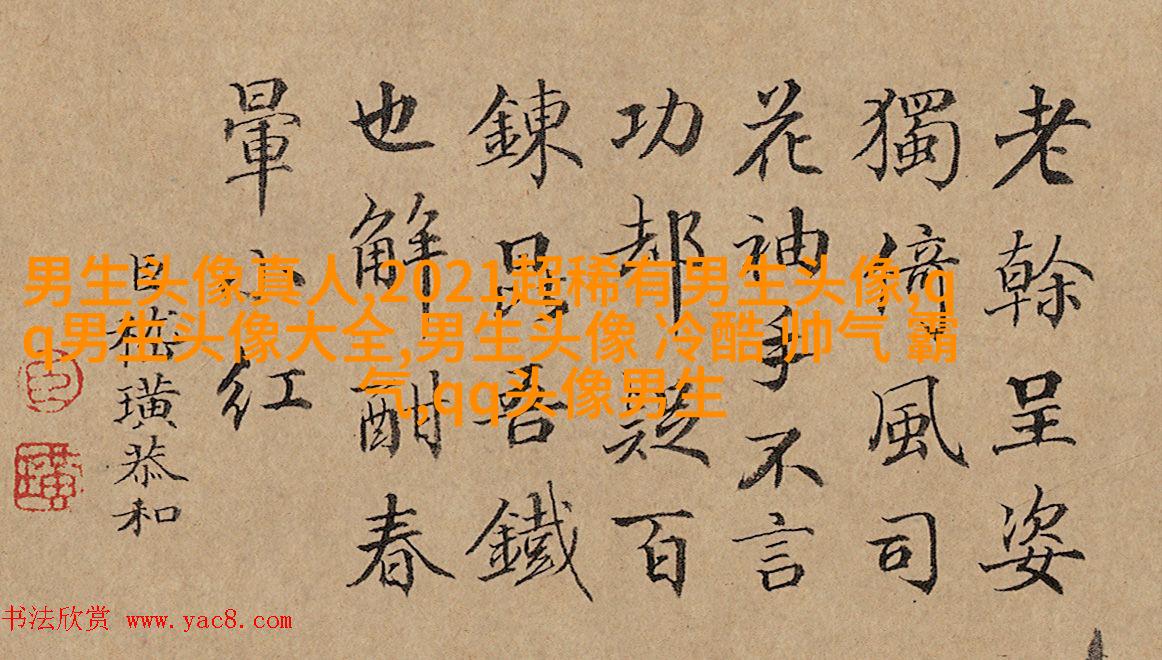 老幹呈姿
獨倚風司
花神手不言
功却疑百
鍊昆吾鐵
也解酣春
暈小紅
臣嵇璜恭和
臣
璜
男生头像真人,2021超稀有男生头像,q
q男生头像大全,男生头像 冷酷 帅气 霸
气,qq头像男生
书法欣赏 www.yac8.com